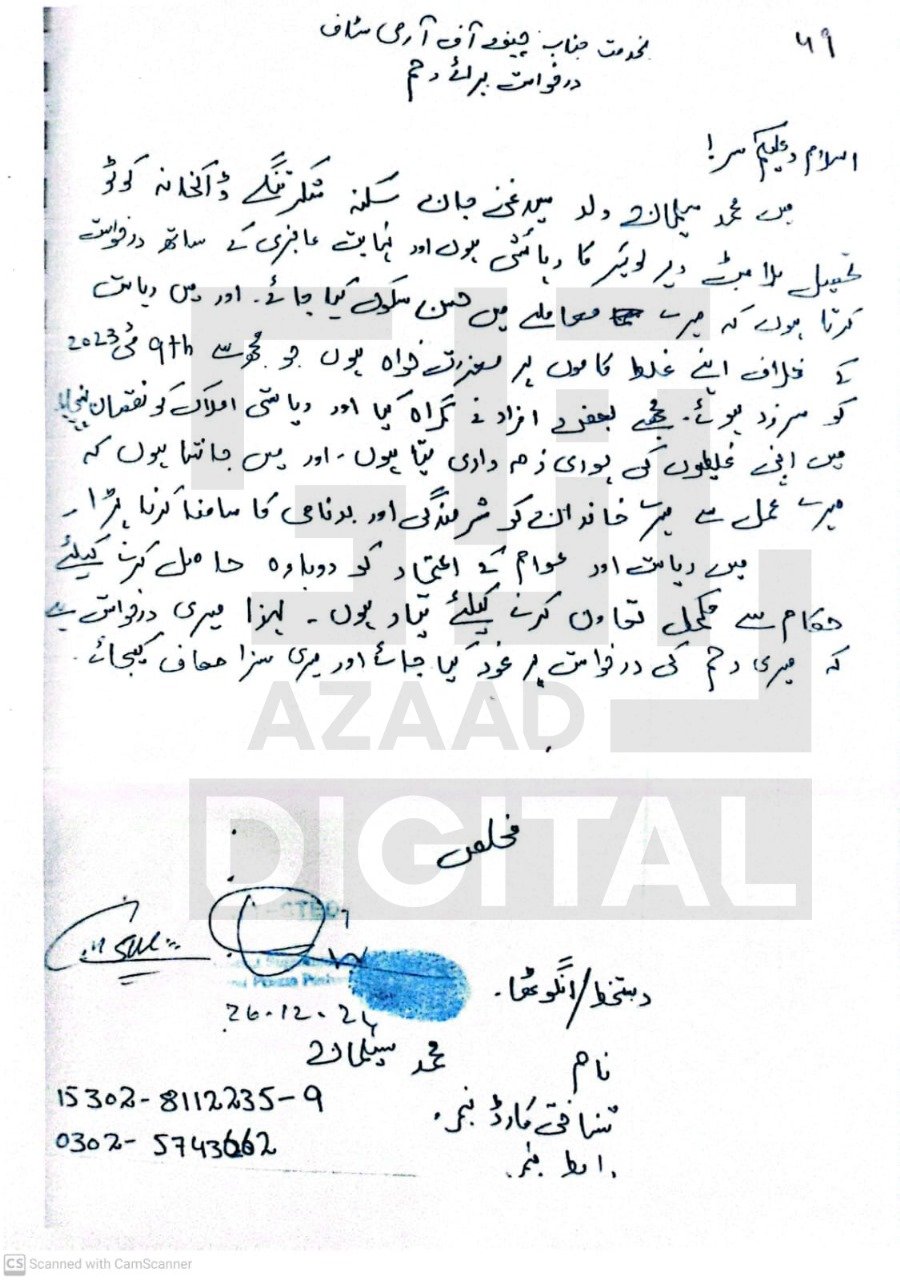 49
بخدمت جناب چیف آف آرمی سٹاف
درخواست برائے رحم
اسلام وعلیکم سر!
میں محمد سلیمان ولد سید غنی جان سکنہ شکر تنگے ڈاکخانہ کوٹو
تحصیل بلامبٹ دیر لوئیر کا رہائشی ہوں اور نہایت عاجزی کے ساتھ درخواست
کرتا ہوں کہ میرے معاملے میں حسن سکوک کیا جائے۔ اور میں ریاست
کے خلاف اپنے غلط کاموں پر معذرت خواہ ہوں جو مجھ سے 9th مئی 2023
کو سرزد ہوئے۔ مجھے بعض افراد نے گمراہ کیا اور ریاستی املاک کو نقصان پہنچایا
میں اپنی غلیطوں کی پوری ذمہ داری لیتا ہوں۔ اور میں جانتا ہوں کہ
میرے عمل سے میرے خاندان کو شرمندگی اور بدنامی کا سامنا کرنا پڑا۔
میں ریاست اور عوام کے اعتماد کو دوبارہ حاصل کرنے کیلئے
حکام سے مکمل تعاون کرنے کیلئے تیار ہوں۔ لہٰزا میری درخواست ہے
کہ میری رحم کی درخواست پر غور کیا جائے اور میری سزا معاف کیجائے۔
آزاد
AZAAD
DIGITAL
مخلص
دستخط/انگوٹھا۔
26.12.24
نام محمد سلیمان
شناختی کارڈ نمبر۔ 15302-8112235-9
رابطہ نمبر۔ 0302-5743662
CS Scanned with CamScanner